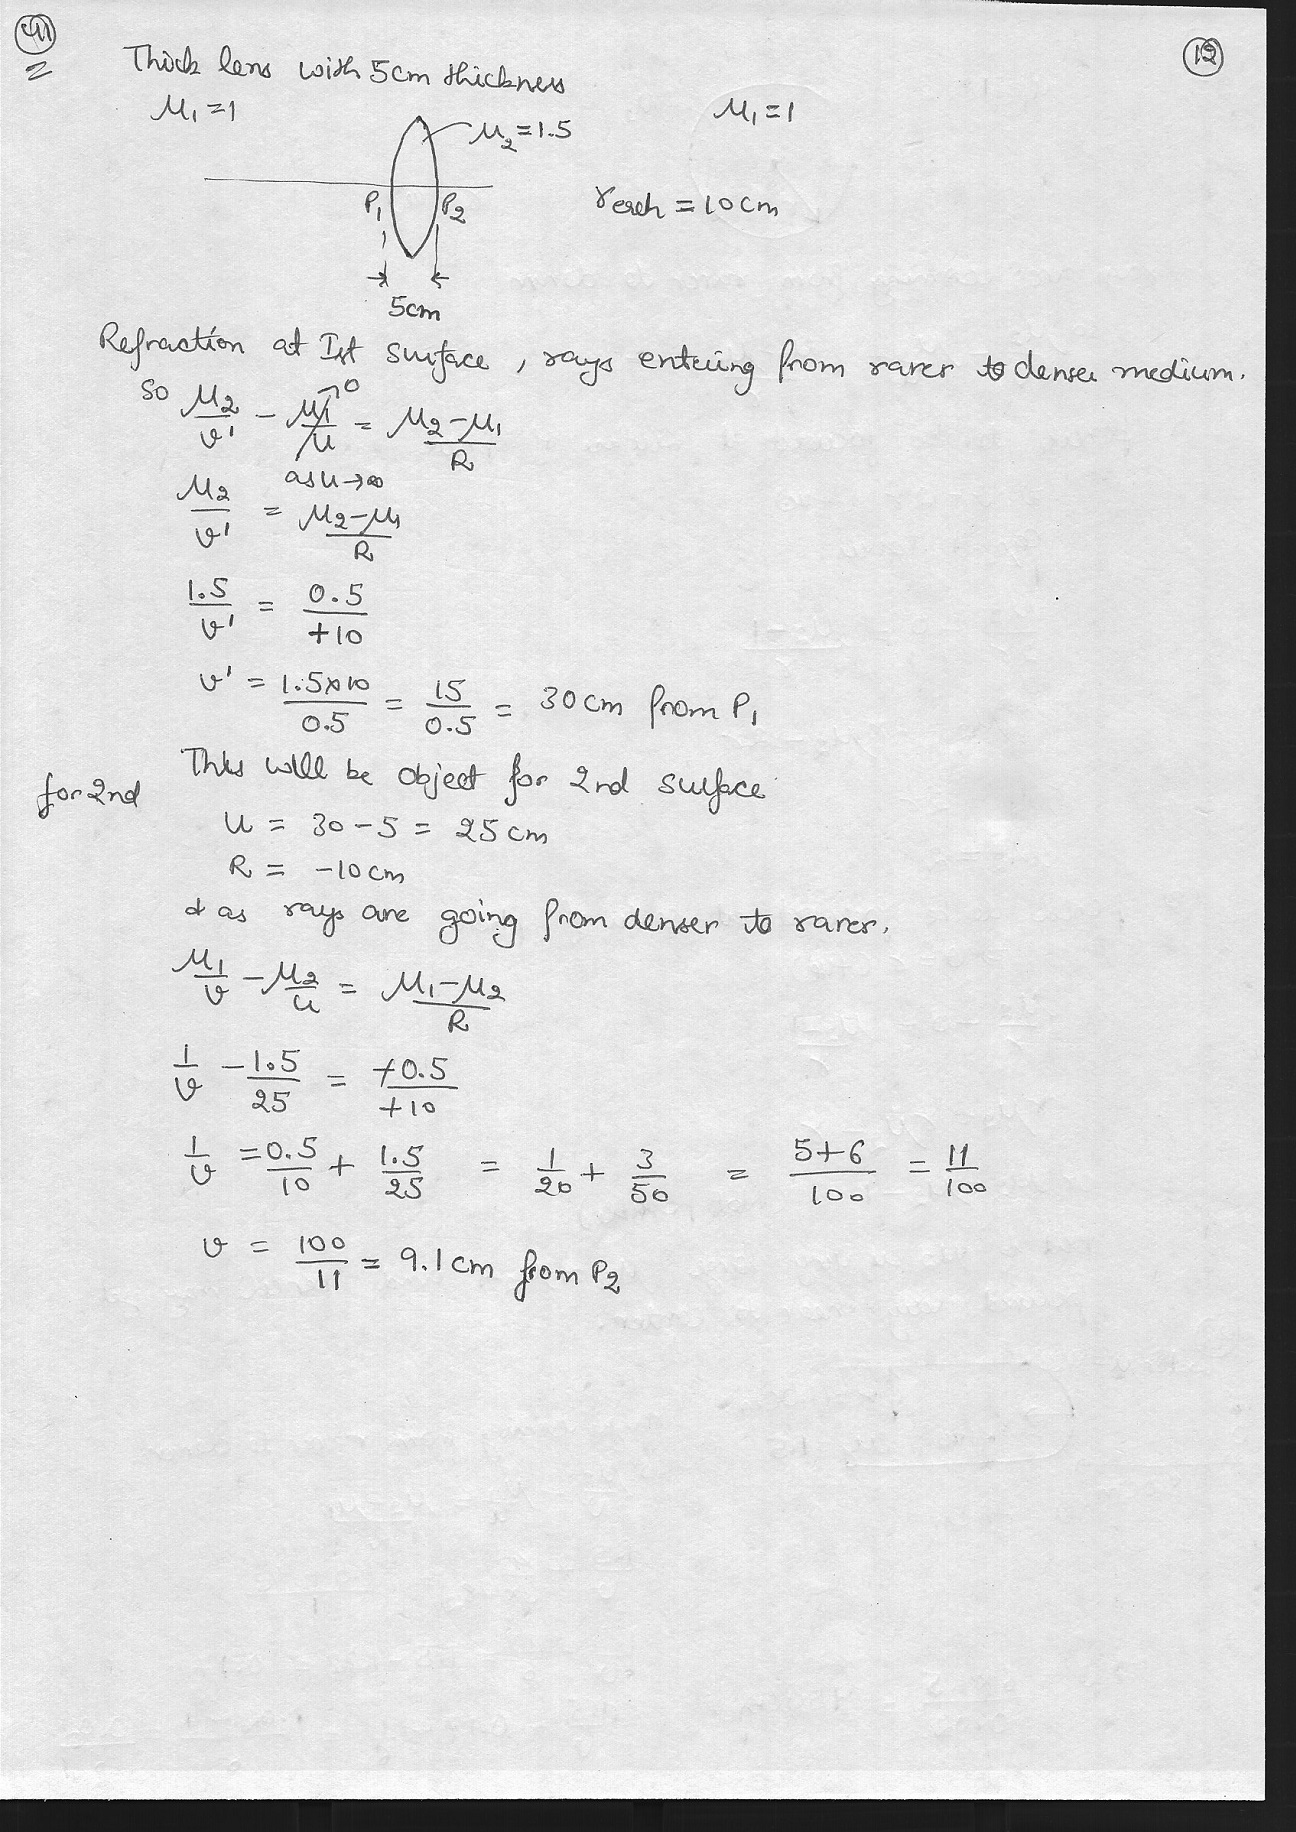 41
12
Thick lens with 5cm thickness
μ₁ = 1
μ₁ = 1
μ₂ = 1.5
P₁ P₂
r each = 10cm
5cm
Refraction at Ist surface, rays entering from rarer to denser medium.
so μ₂/v' - μ₁/u → 0 = μ₂-μ₁/R
as u→∞
μ₂/v' = μ₂-μ₁/R
1.5/v' = 0.5/+10
v' = 1.5×10/0.5 = 15/0.5 = 30cm from P₁
This will be object for 2nd surface
for 2nd
u = 30-5 = 25cm
R = -10cm
& as rays are going from denser to rarer.
μ₁/v - μ₂/u = μ₁-μ₂/R
1/v - 1.5/25 = +0.5/+10
1/v = 0.5/10 + 1.5/25 = 1/20 + 3/50 = 5+6/100 = 11/100
v = 100/11 = 9.1cm from P2